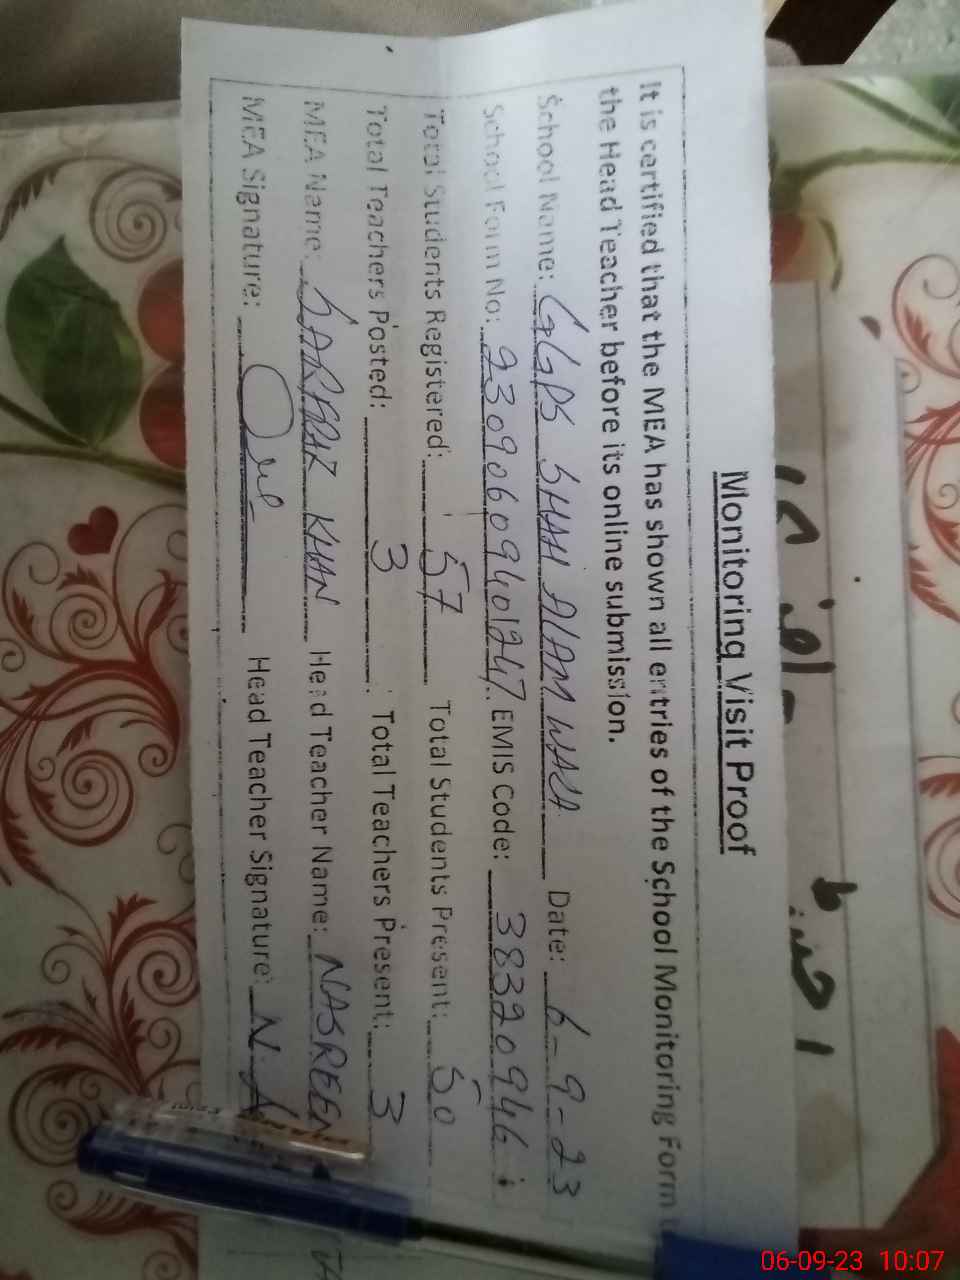 Monitoring Visit Proof
It is certified that the MEA has shown all entries of the School Monitoring Form
the Head Teacher before its online submission.
School Name: GGPS SHAH ALAM WALA Date: 6-9-23
School Form No: 230906094401247 EMIS Code: 38320946
Total Students Registered: 57 Total Students Present: 50
Total Teachers Posted: 3 Total Teachers Present: 3
MEA Name: KHAN Head Teacher Name: NASREEN
MEA Signature: Head Teacher Signature: N.A
06-09-23 10:07